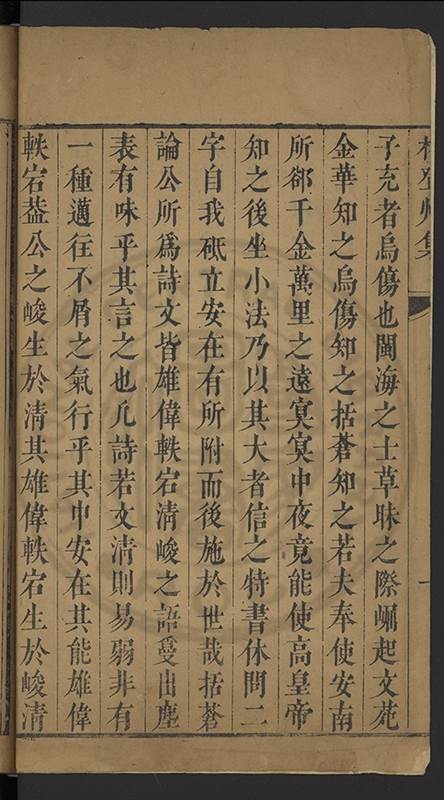 子充者烏傷也閩海之士草昧之際崛起文苑
金華知之烏傷知之括蒼知之若夫奉使安南
所郤千金萬里之遠寞寞中夜竟能使高皇帝
知之後坐小法乃以其大者信之特書休問二
字自我砥立安在有所附而後施於世哉括蒼
論公所爲詩文皆雄偉軼宕清峻之語敻出塵
表有味乎其言之也凡詩若文清則易弱非有
一種邁往不屑之氣行乎其中安在其能雄偉
軼宕葢公之峻生於清其雄偉軼宕生於峻清